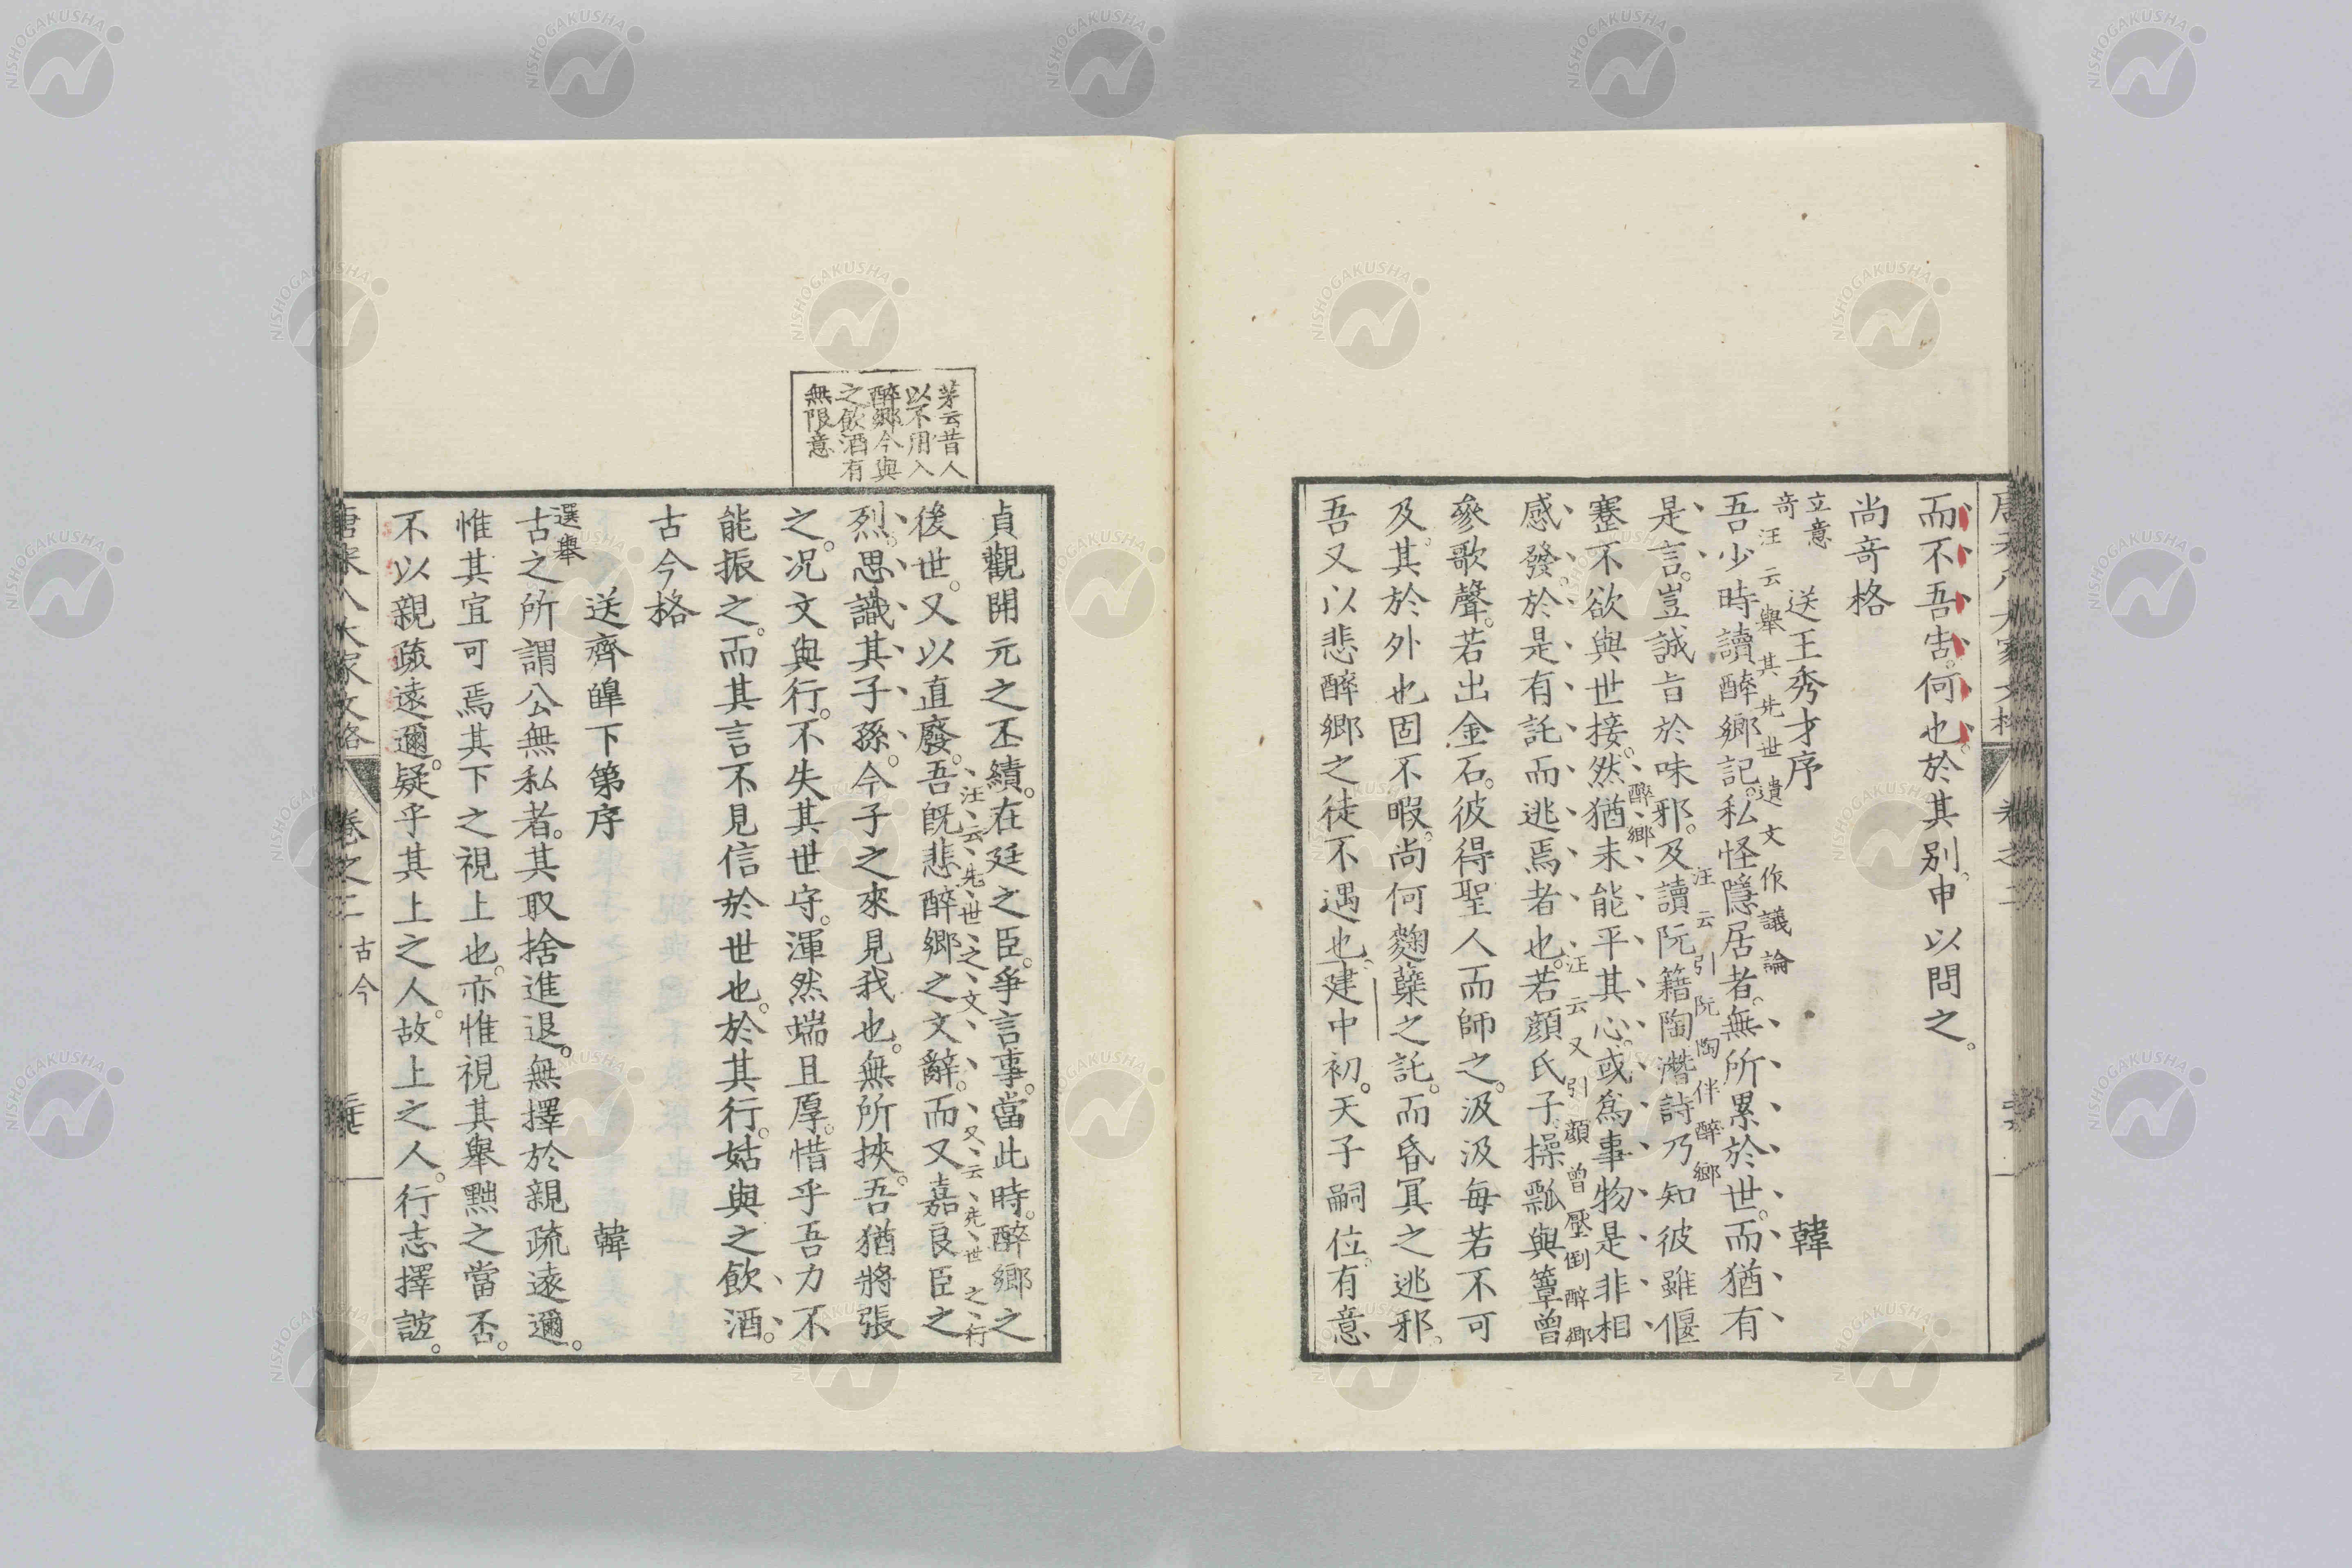 而不吾告。何也。於其別。申以問之。
尚奇格
立意
奇
送王秀才序 韓
汪云舉其先世遺文作議論
吾少時讀醉鄉記。私怪隱居者。無所累於世。而猶有
汪云引阮陶伴醉鄉
是言。豈誠旨於味邪。及讀阮籍陶潛詩。乃知彼雖偃
醉鄉
蹇不欲與世接。然猶未能平其心。或爲事物是非相
汪云又引顏曾壓倒醉鄉
感發。於是有託而逃焉者也。若顏氏子。操瓢與簞。曾
參歌聲。若出金石。彼得聖人而師之。汲汲每若不可
及。其於外也。固不暇。尚何麴蘖之託。而昏冥之逃邪。
吾又以悲醉鄉之徒不遇也。建中初。天子嗣位。有意
茅云昔人
以不用入
醉鄉今與
之飲酒有
無限意
貞觀開元之丕績。在廷之臣。爭言事。當此時。醉鄉之
汪云先世之文又云先世之行
後世。又以直廢。吾既悲醉鄉之文辭。而又嘉良臣之
烈。思識其子孫。今子之來見我也。無所挾。吾猶將張
之。况文與行。不失其世守。渾然端且厚。惜乎吾力不
能振之。而其言不見信於世也。於其行。姑與之飲酒。
古今格
送齊皥下第序 韓
選舉
古之所謂公無私者。其取捨進退。無擇於親疏遠邇。
惟其宜可焉。其下之視上也。亦惟視其舉黜之當否。
不以親疏遠邇。疑乎其上之人。故上之人。行志擇誼。
唐宋八大家文格 卷之二 古今